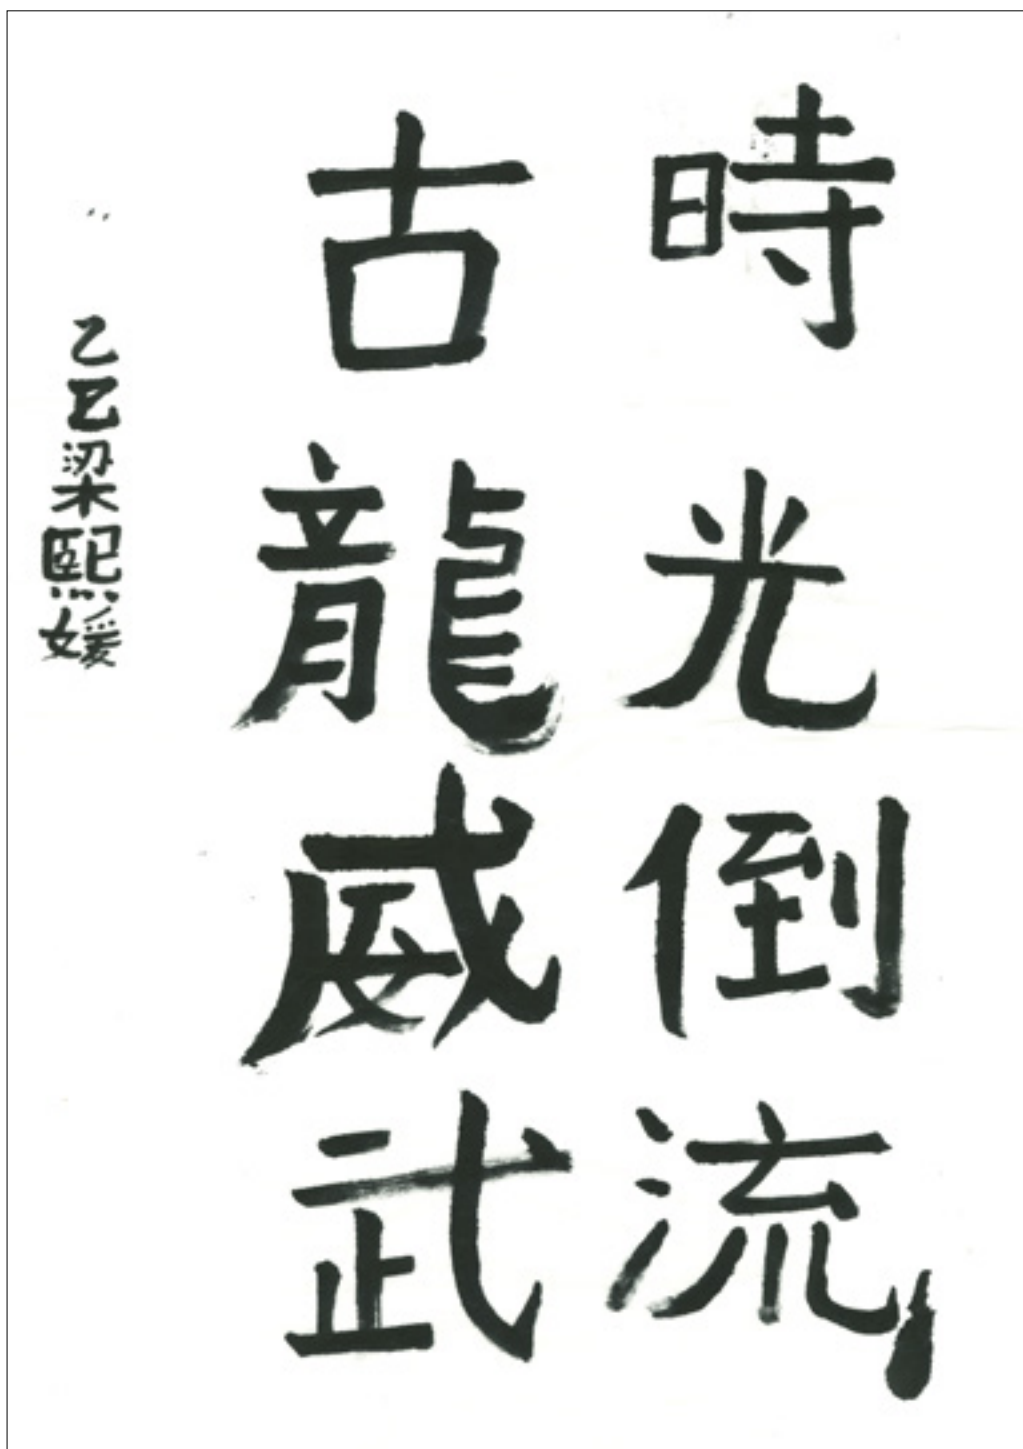 時光倒流
古龍威武
乙巳梁熙媛